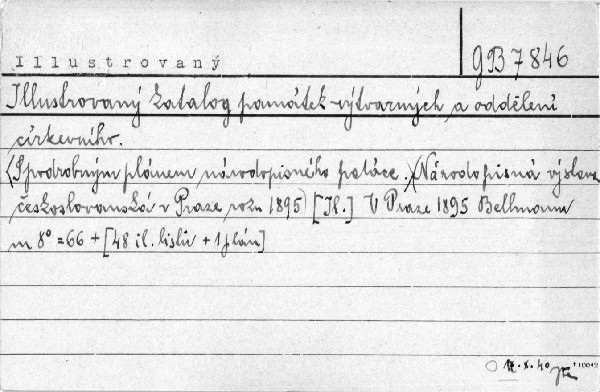 Illustrovaný
GB 7846
Illustrovaný katalog památek výtvarných a oddělení
církevního.
(S podrobným plánem národopisného paláce.) (Národopisná výstava
československá v Praze roku 1895) [Il.] V Praze 1895 Bellmann
m 8° = 66 + [48 il. listů + 1 plán]
X. 40